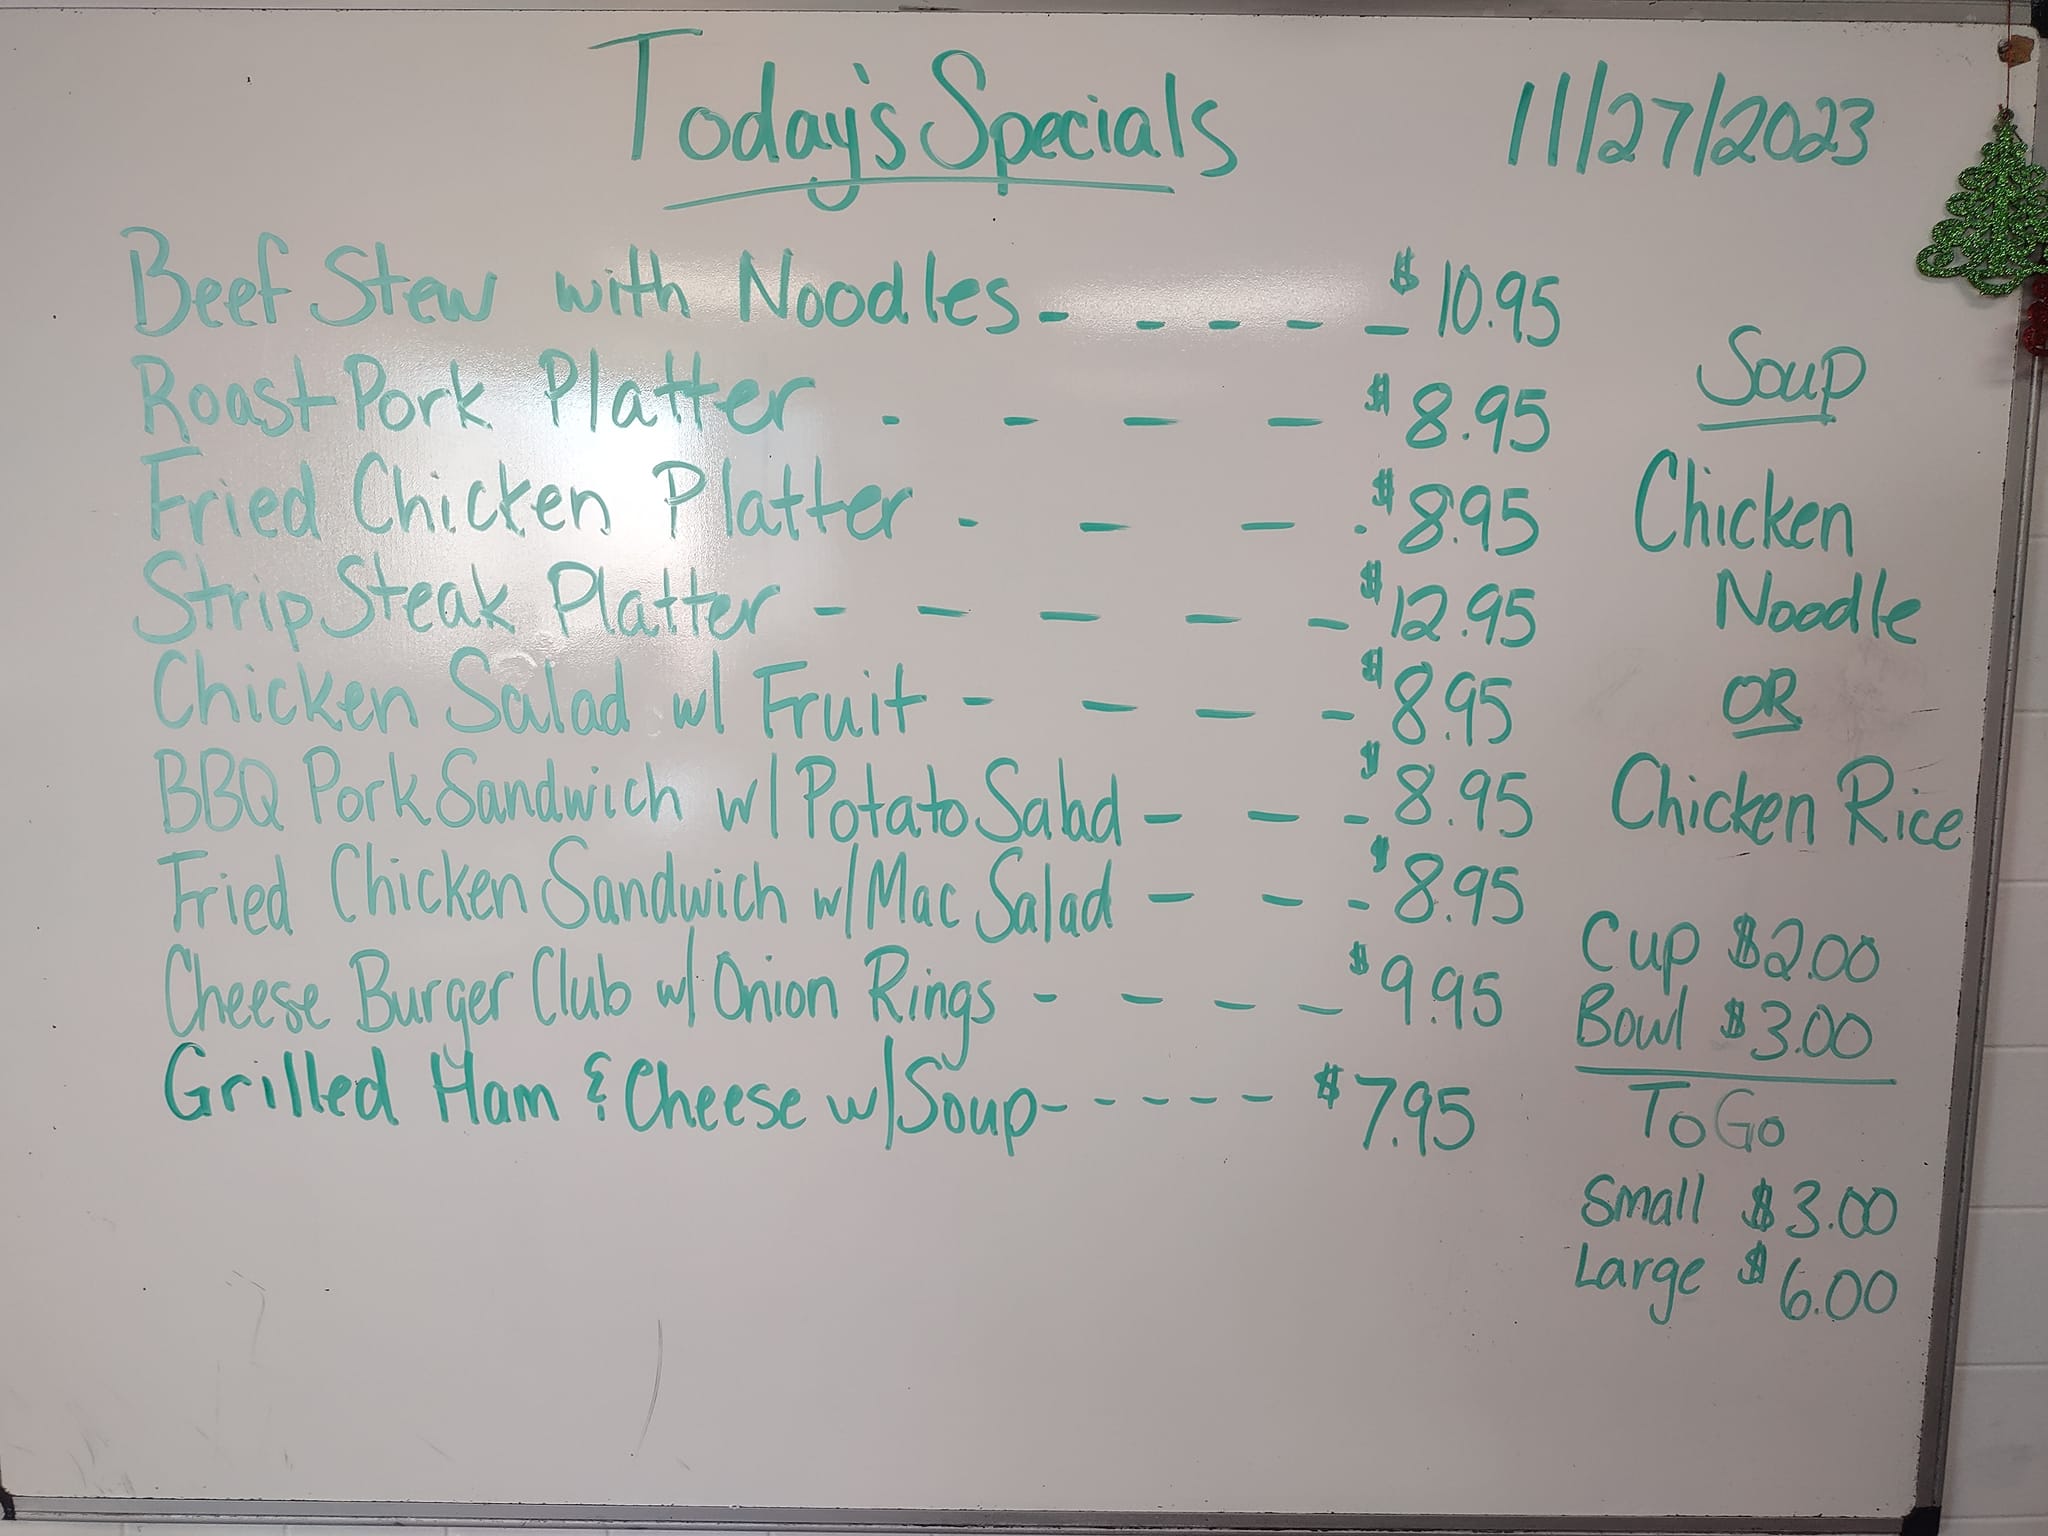 Today's Specials 11/27/2023
Beef Stew with Noodles - - - - - $10.95
Roast Pork Platter - - - - $8.95
Fried Chicken Platter - - - - $8.95
Strip Steak Platter - - - - - $12.95
Chicken Salad w/ Fruit - - - - $8.95
BBQ Pork Sandwich w/ Potato Salad - - - $8.95
Fried Chicken Sandwich w/ Mac Salad - - - $8.95
Cheese Burger Club w/ Onion Rings - - - - $9.95
Grilled Ham & Cheese w/ Soup - - - - - $7.95
Soup
Chicken
Noodle
OR
Chicken Rice
Cup $2.00
Bowl $3.00
To Go
Small $3.00
Large $6.00